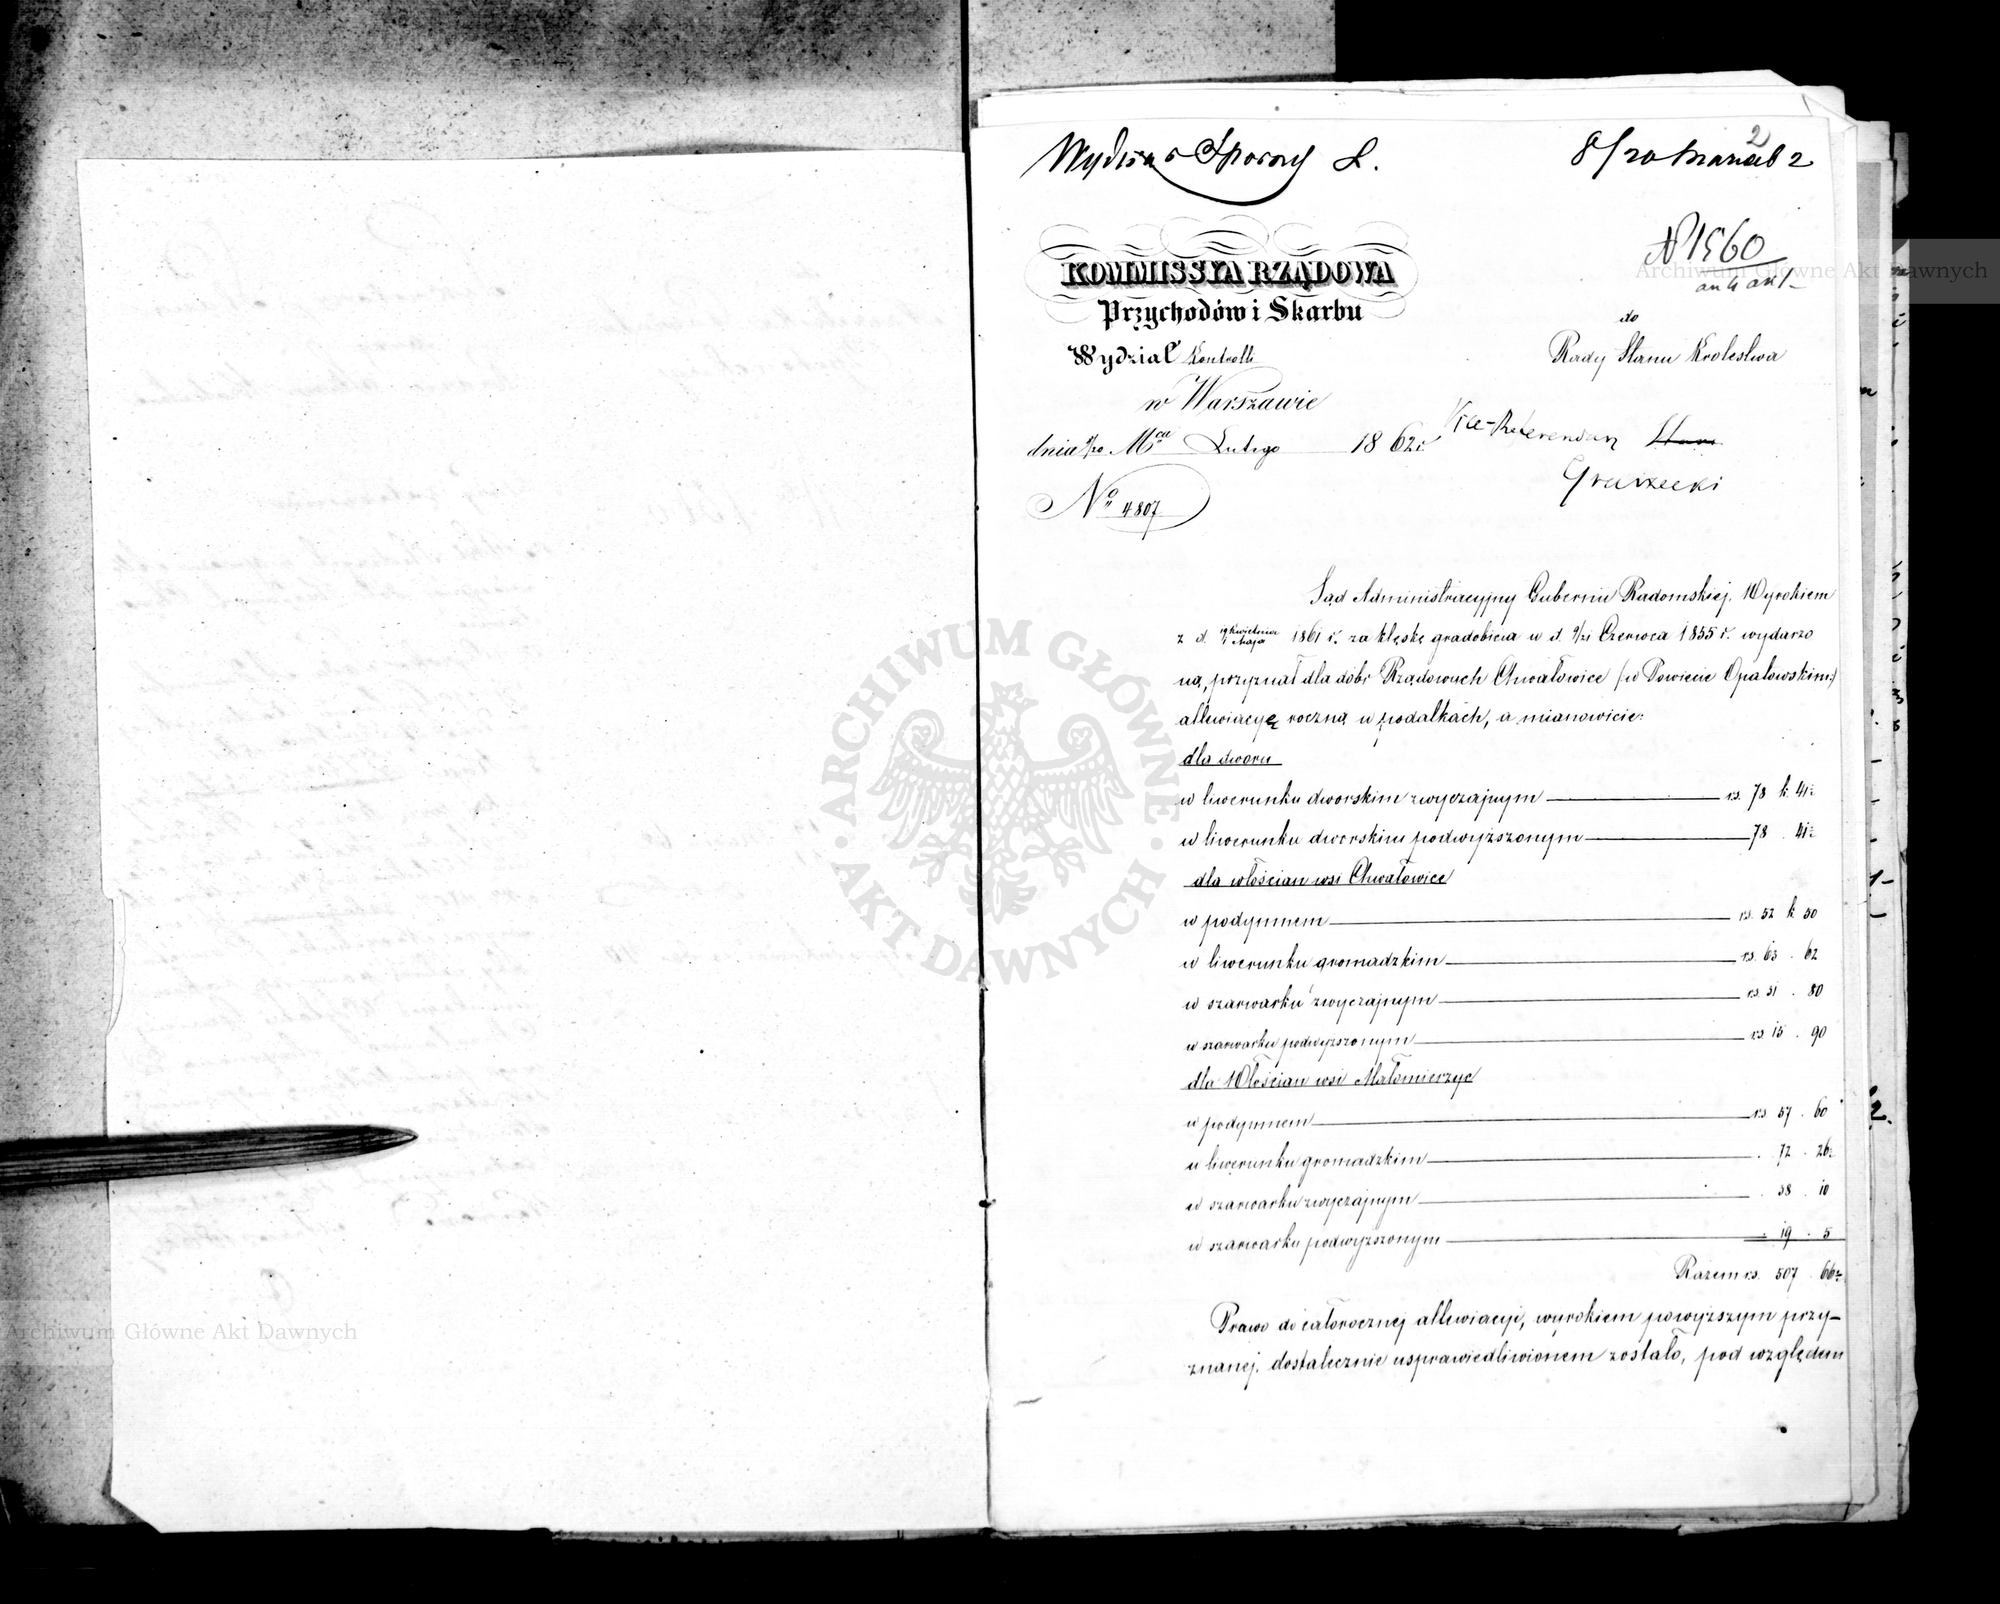 2
Wydział Sporny L.
8/20 Marca 62
№ 1560
KOMMISSYA RZĄDOWA
Przychodów i Skarbu
Wydział Kontrolli
w Warszawie
dnia Mca Lutego 1862 r.
No 4807
do
Rady Stanu Krolestwa
Vice-Referendarz
Sąd Administracyjny Gubernii Radomskiej, Wyrokiem
z d. 19 Kwietnia / 1 Maja 1861 r. za klęskę gradobicia w d. 9/21 Czerwca 1855 r. wydarzo
ną, przyznał dla dóbr Rządowych Chwałowice (w Powiecie Opatowskim)
allewiacyę roczną w podatkach, a mianowicie:
dla dworu
w liwerunku dworskim zwyczajnym rs. 78 k. 41½
w liwerunku dworskim podwyższonym 78 . 41½
dla włościan wsi Chwałowice
w podymnem rs. 52 k. 50
w liwerunku gromadzkim rs. 63 . 62
w szarwarku zwyczajnym rs. 31 . 80
w szarwarku podwyższonym rs. 15 . 90
dla Włościan wsi Małomierzyc
w podymnem rs. 57 . 60
w liwerunku gromadzkim . 72 . 26½
w szarwarku zwyczajnym . 38 . 10
w szarwarku podwyższonym . 19 . 5
Razem rs. 507 . 66½
Prawo do całorocznej allewiacyi, wyrokiem powyższym przy-
znanej, dostatecznie usprawiedliwionem zostało, pod względem
Archiwum Główne Akt Dawnych
ARCHIWUM GŁÓWNE · AKT DAWNYCH ·
Archiwum Główne Akt Dawnych